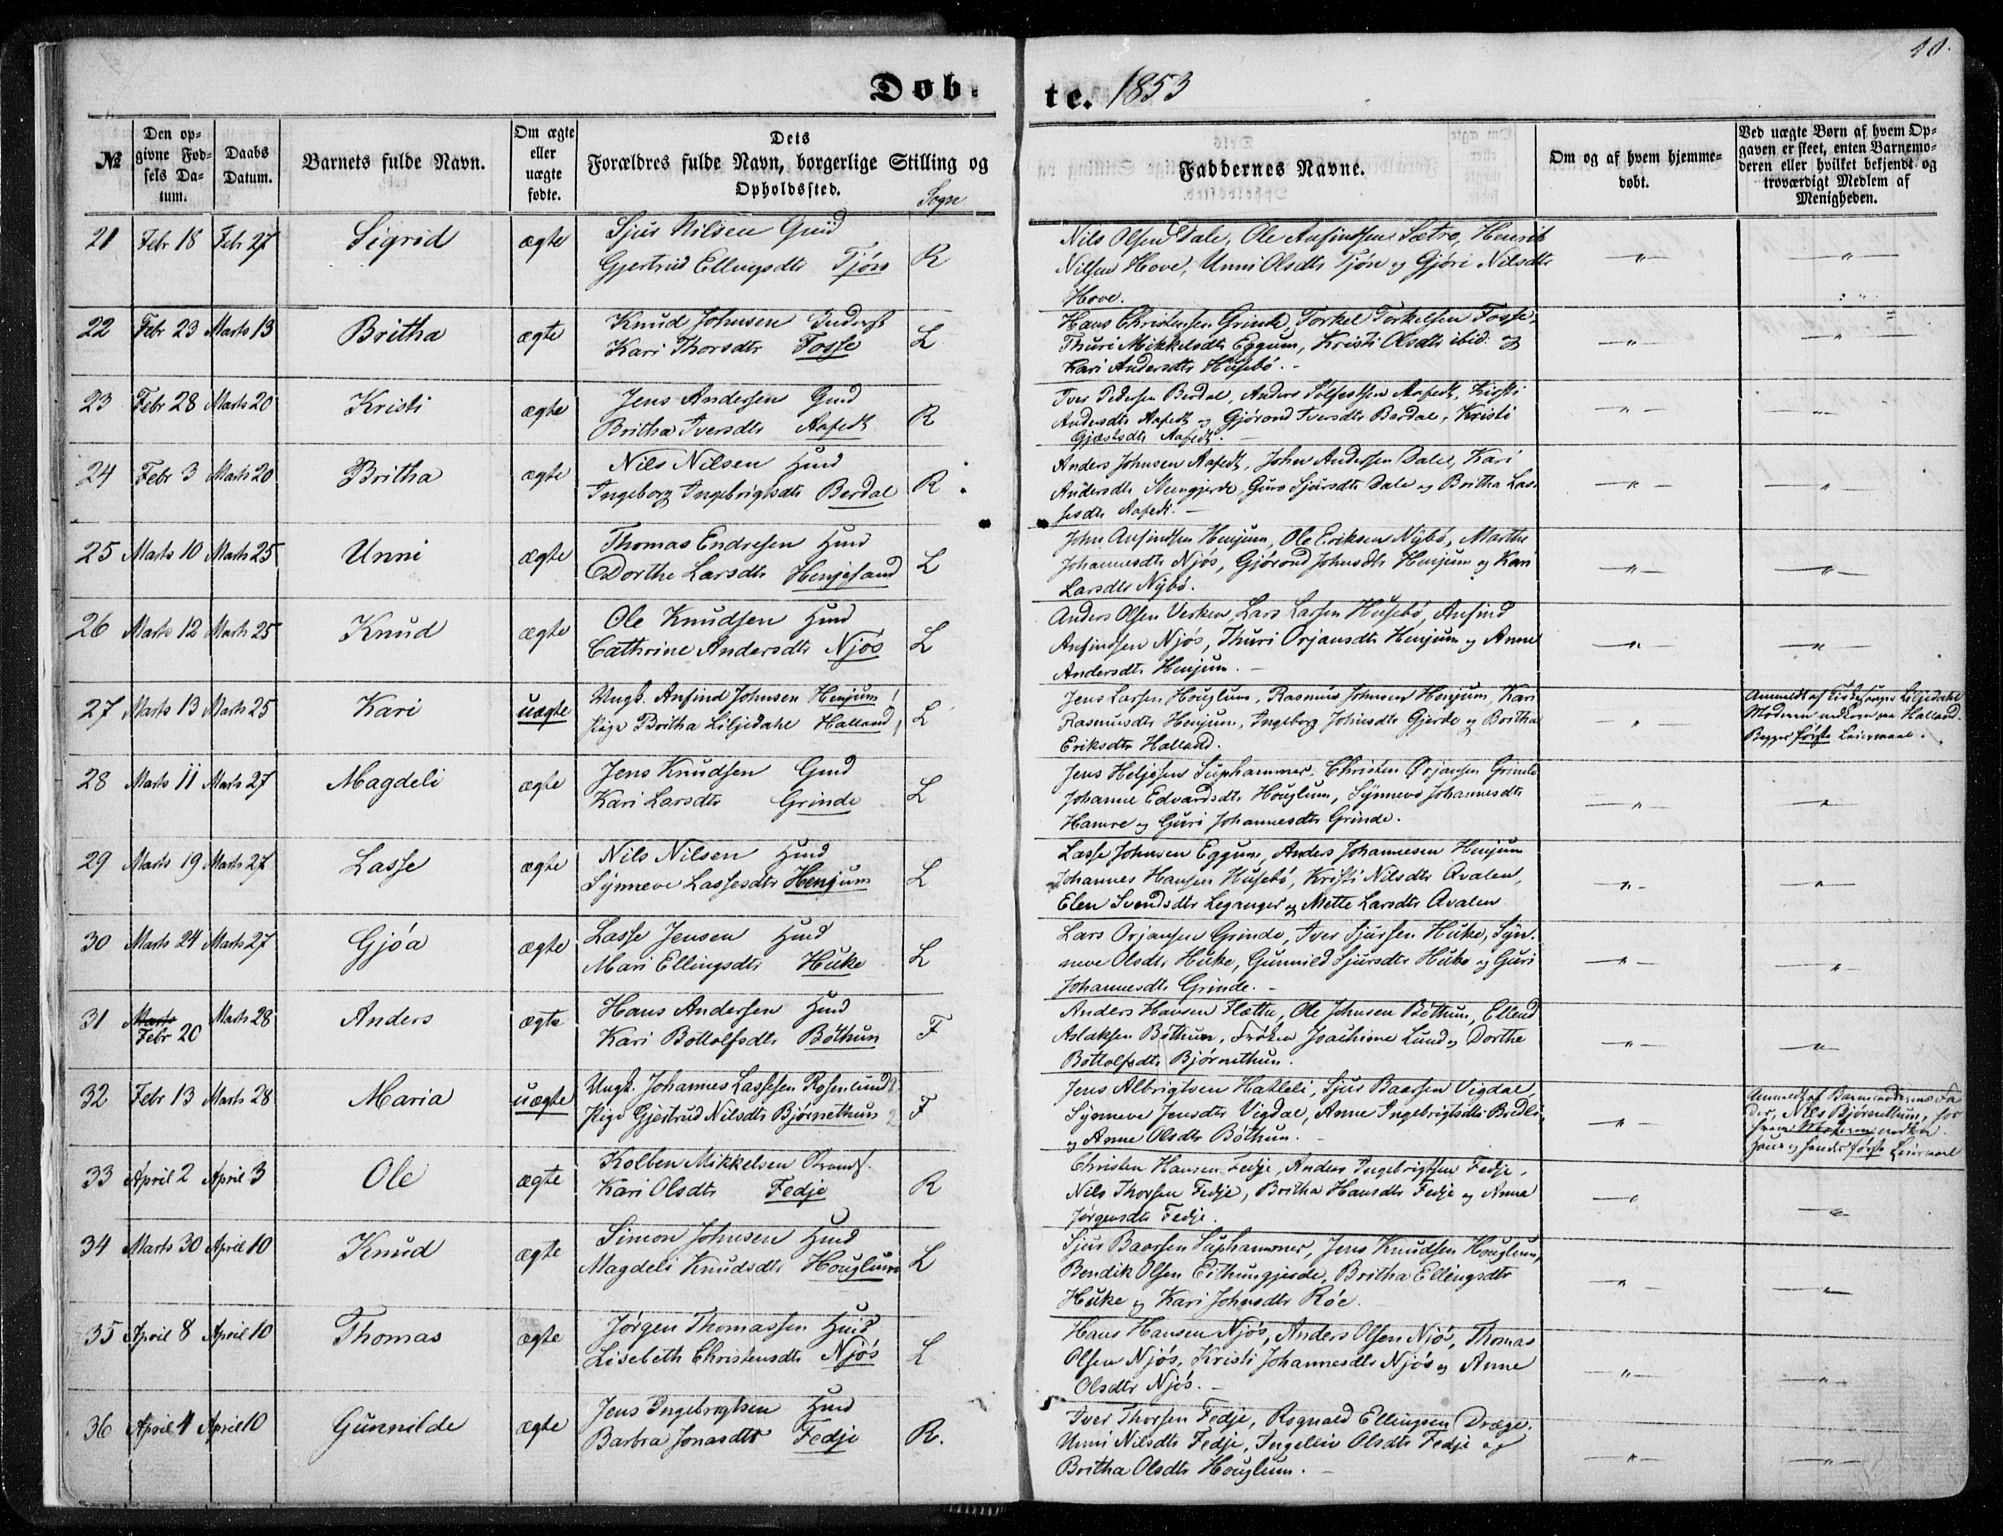 10.
Døb-te. 1853
№
Den opgivne Fødsels Datum.
Daabs Datum.
Barnets fulde Navn.
Om ægte eller uægte fødte.
Dets Forældres fulde Navn, borgerlige Stilling og Opholdssted.
Sogn
Faddernes Navne.
Om og af hvem hjemmedøbt.
Ved uægte Børn af hvem Opgaven er skeet, enten Barnemoderen eller hvilket bekjendt og troværdigt Medlem af Menigheden.
21 Febr 18 Feb 27 Sigrid ægte Sjur Nilsen Gmd
Gjertrud Ellingsdtr Tjøn R
Nils Olsen Dale, Ole Anfindsen Sætre, Henrik
Nilsen Hove, Unni Olsdtr Tjøn og Gjøri Nilsdtr
Hove.
22 Febr 23 Marts 13 Britha ægte Knud Johnsen Inderst
Kari Thorsdtr Fosse L
Hans Christensen Grinde, Torkel Torkelsen Fosse,
Thuri Mikkelsdtr Eggum, Kristi Olsdtr ibid. og
Kari Andersdtr Husebø.
23 Febr 28 Marts 20 Kristi ægte Jens Andersen Gmd
Britha Iversdtr Aafedt R
Iver Pedersen Berdal, Anders Solfestsen Aafedt, Kristi
Andersdtr Aafedt og Gjørond Iversdtr Berdal, Kristi
Gjæstsdtr Aafedt.
24 Febr 3 Marts 20 Britha ægte Nils Nilsen Hmd
Ingeborg Ingebrigtsdtr Berdal R
Anders Johnsen Aafedt, John Andersen Dale, Kari
Andersdtr Stengjerde, Guro Sjursdtr Dale og Britha Las-
sesdtr Aafedt.
25 Marts 10 Marts 25 Unni ægte Thomas Endresen Hmd
Dorthe Larsdtr Henjesand L
John Anfindsen Henjum, Ole Eriksen Nybø, Marthe
Johannesdtr Njøs, Gjørond Johnsdtr Henjum og Kari
Larsdtr Nybø.
26 Marts 12 Marts 25 Knud ægte Ole Knudsen Hmd
Cathrine Andersdtr Njøs L
Anders Olsen Verken, Lars Larsen Husebø, Anfind
Anfindsen Njøs, Thuri Orjansdtr Henjum og Anne
Andersdtr Henjum.
27 Marts 13 Marts 25 Kari uægte Ungk. Anfind Johnsen Henjum
Pige Britha Liljedahl Halland L
Jens Larsen Houglum, Rasmus Johnsen Henjum, Kari
Rasmusdtr Henjum, Ingeborg Johnsdtr Gjerde og Britha
Eriksdtr Halland.
Anmeldt af Liljedahl
Moderen Halland.
Begges første Leiermaal.
28 Marts 11 Marts 27 Magdeli ægte Jens Knudsen Gmd
Kari Larsdtr Grinde L
Jens Heljesen Suphammer, Christen Ørjansen Grinde
Johanne Edvardsdtr Houglum, Synneve Johannesdtr
Hamre og Guri Johannesdtr Grinde.
29 Marts 19 Marts 27 Lasse ægte Nils Nilsen Hmd
Synneve Lassesdtr Henjum L
Lasse Johnsen Eggum, Anders Johannesen Henjum
Johannes Hansen Husebø, Kristi Nilsdtr Avalen,
Elen Svendsdtr Leganger og Mette Larsdtr Avalen
30 Marts 24 Marts 27 Gjøa ægte Lasse Jensen Hmd
Mari Ellingsdtr Huke L
Lars Orjansen Grinde, Iver Sjursen Huke, Syn-
neve Olsdtr Huke, Gunnild Sjursdtr Huke og Guri
Johannesdtr Grinde.
31 Marts
Febr 20 Marts 28 Anders ægte Hans Andersen Hmd
Kari Bottolfsdtr Bøthun F
Anders Hansen Flætte, Ole Johnsen Bøthum, Ellend
Aslaksen Bøthum, Frøken Joachime Lund og Dorthe
Bottolfsdtr Bjørnethun.
32 Febr 13 Marts 28 Maria uægte Ungk. Johannes Lassesen Rosenlund
Pige Gjertrud Nilsdtr Bjørnethun F
Jens Albrigtsen Hatleli, Sjur Baarsen Vigdal,
Synneve Jensdtr Vigdal, Anne Ingebrigtsdtr
og Anne Olsdtr Bøthum.
Anmeldt af Barnemoderens Fa-
der, Nils Bjørnethum,
Hans og hendes første Leiermaal
33 April 2 April 3 Ole ægte Kolben Mikkelsen Strands.
Kari Olsdtr Fedje R
Christen Hansen Fedje, Anders Ingebrigtsen Fedje,
Nils Thorsen Fedje, Britha Hansdtr Fedje og Anna
Jørgensdtr Fedje.
34 Marts 30 April 10 Knud ægte Simon Johnsen Hmd
Magdeli Knudsdtr Houglum L
Sjur Baarsen Suphammer, Jens Knudsen Houglum,
Bendik Olsen Eithungjerde, Britha Ellingsdtr
Huke og Kari Johnsdtr Røe.
35 April 8 April 10 Thomas ægte Jørgen Thomassen Hmd
Lisebeth Christensdtr Njøs L
Hans Hansen Njøs, Anders Olsen Njøs, Thomas
Olsen Njøs, Kristi Johannesdtr Njøs og Anne
Olsdtr Njøs.
36 April 4 April 10 Gunnilde ægte Jens Ingebrigtsen Hmd
Barbra Jonasdtr Fedje R.
Iver Thorsen Fedje, Rognald Ellingsen Dræge.
Unni Nilsdtr Fedje, Ingeliv Olsdtr Fedje og
Britha Olsdtr Houglum.